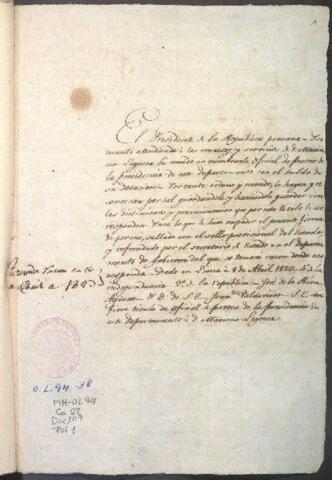 1
El Presidente de la Republica peruana = Por
quanto atendiendo à los meritos y servicios de d. Maria
no Seguera he venido en nombrarle Oficial de
la presidencia de este departamento con el sueldo de
su dotacion. Por tanto ordeno y mando, le hayan y re
conoscan por tal guardandole y haciendole guardar todas
las distinciones y preeminencias que por este titulo le cor
responden. Para lo que le hice expedir el presente firma
do por mi, sellado con el sello provisional del Estado y
refrendado por el secretario de Estado en el departa
mento de Gobierno del que se tomará razon donde cor
responda. Dado en Lima à 8 de Abril 1823. 4º de la
independencia 2º de la republica = José de la Riva
Aguero = P. O. de S. E. Franco Valdivieso = S. E. con
fiere titulo de Oficial de la Presidencia de
este departamento à d. Mariano
Razon en 16
Abril de 1823
O.L. 94-78
MH-OL 94
Ca 22
Doc 109
Fol 1